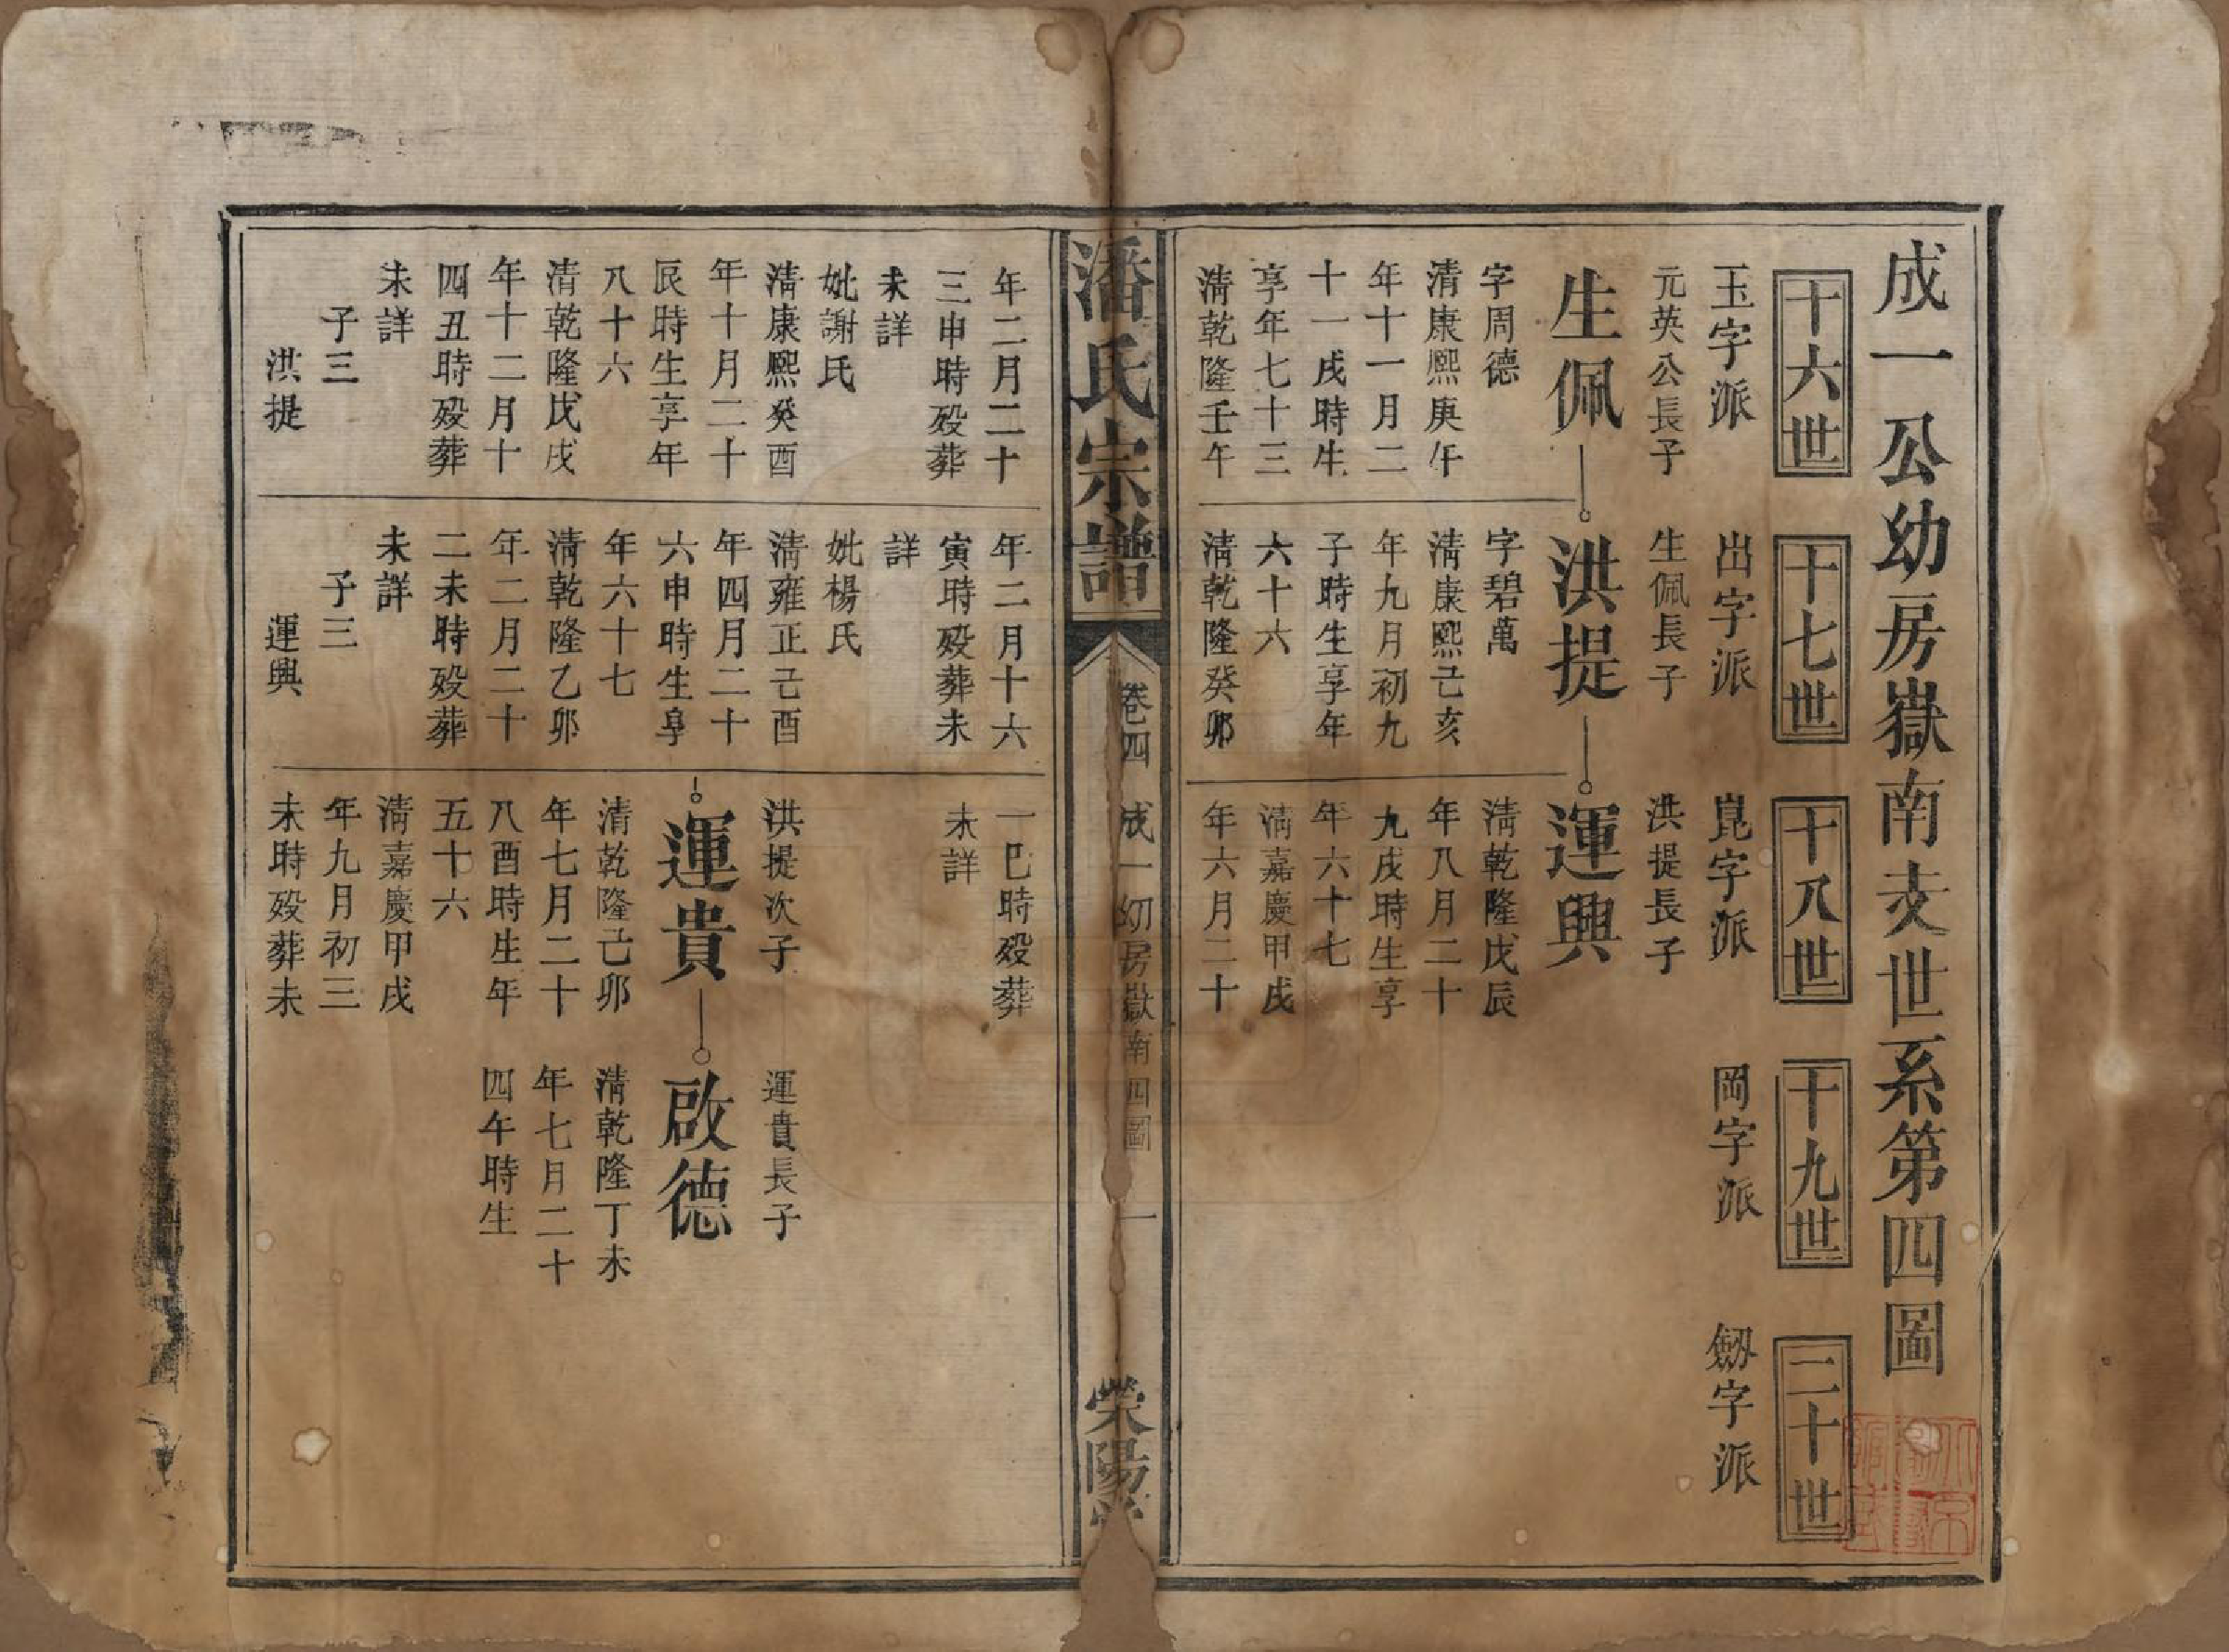 成一公幼房嶽南支世系第四圖
十六世
十七世
十八世
十九世
二十世
玉字派
出字派
崑字派
岡字派
劔字派
元英公長子
生佩
字周德
清康熙庚午
年十一月二
十一戌時生
享年七十三
清乾隆壬午
生佩長子
洪提
字碧萬
清康熙己亥
年九月初九
子時生享年
六十六
清乾隆癸卯
洪提長子
運興
清乾隆戊辰
年八月二十
九戌時生享
年六十七
清嘉慶甲戌
年六月二十
潘氏宗譜
卷四
成一幼房嶽南四圖
一
榮陽
年二月二十
三申時殁葬
未詳
妣謝氏
清康熙癸酉
年十月二十
辰時生享年
八十六
清乾隆戊戌
年十二月十
四丑時殁葬
未詳
子三
洪提
年二月十六
寅時殁葬未
詳
妣楊氏
清雍正己酉
年四月二十
六申時生享
年六十七
清乾隆乙卯
年二月二十
二未時殁葬
未詳
子三
運興
一巳時殁葬
未詳
洪提次子
運貴
清乾隆己卯
年七月二十
八酉時生年
五十六
清嘉慶甲戌
年九月初三
未時殁葬未
運貴長子
啟德
清乾隆丁未
年七月二十
四午時生